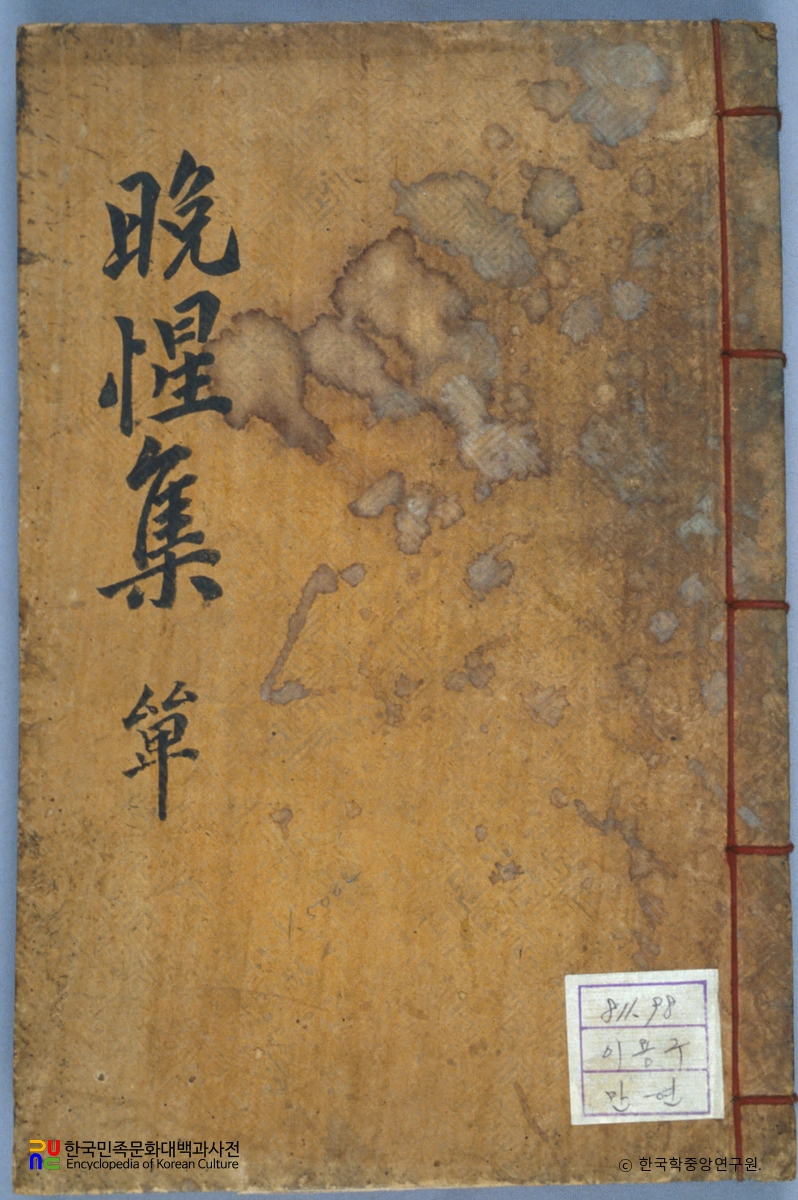 晩惺集
單
811.98
이용구
만
한국민족문화대백과사전
Encyclopedia of Korean Culture
© 한국학중앙연구원.